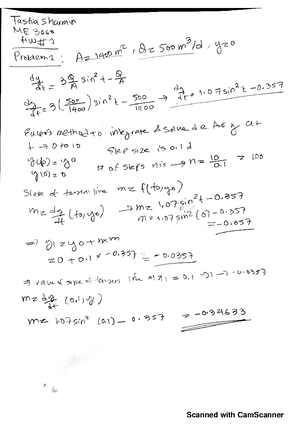 Tastia Sharmin
ME 3060
HW # 1
Problem 1: A = 1400 m², Q = 500 m³/d, y=0
dy/dt = 3 Q/A sin² t - Q/A
dy/dt = 3 (500/1400) sin² t - 500/1400 → dy/dt = 1.07 sin² t - 0.357
Eulers method to integrate & solve de for y at
t → 0 to 10 step size is 0.1 d
y(t₀) = y₀
y(0) = 0 # of steps n is → n = 10/0.1 = 100
Slope of tangent line m = f(t₀, y₀)
m = dy/dt (t₀, y₀) → m = 1.07 sin² t - 0.357
m = 1.07 sin² (0) - 0.357
= -0.357
⇒ y1 = y₀ + m
= 0 + 0.1 × -0.357 = -0.0357
value of slope of tangent line at x1 = 0.1 → y1 → -0.0357
m = dy/dt (0.1, y1)
m = 1.07 sin² (0.1) - 0.357 = -0.34633
Scanned with CamScanner